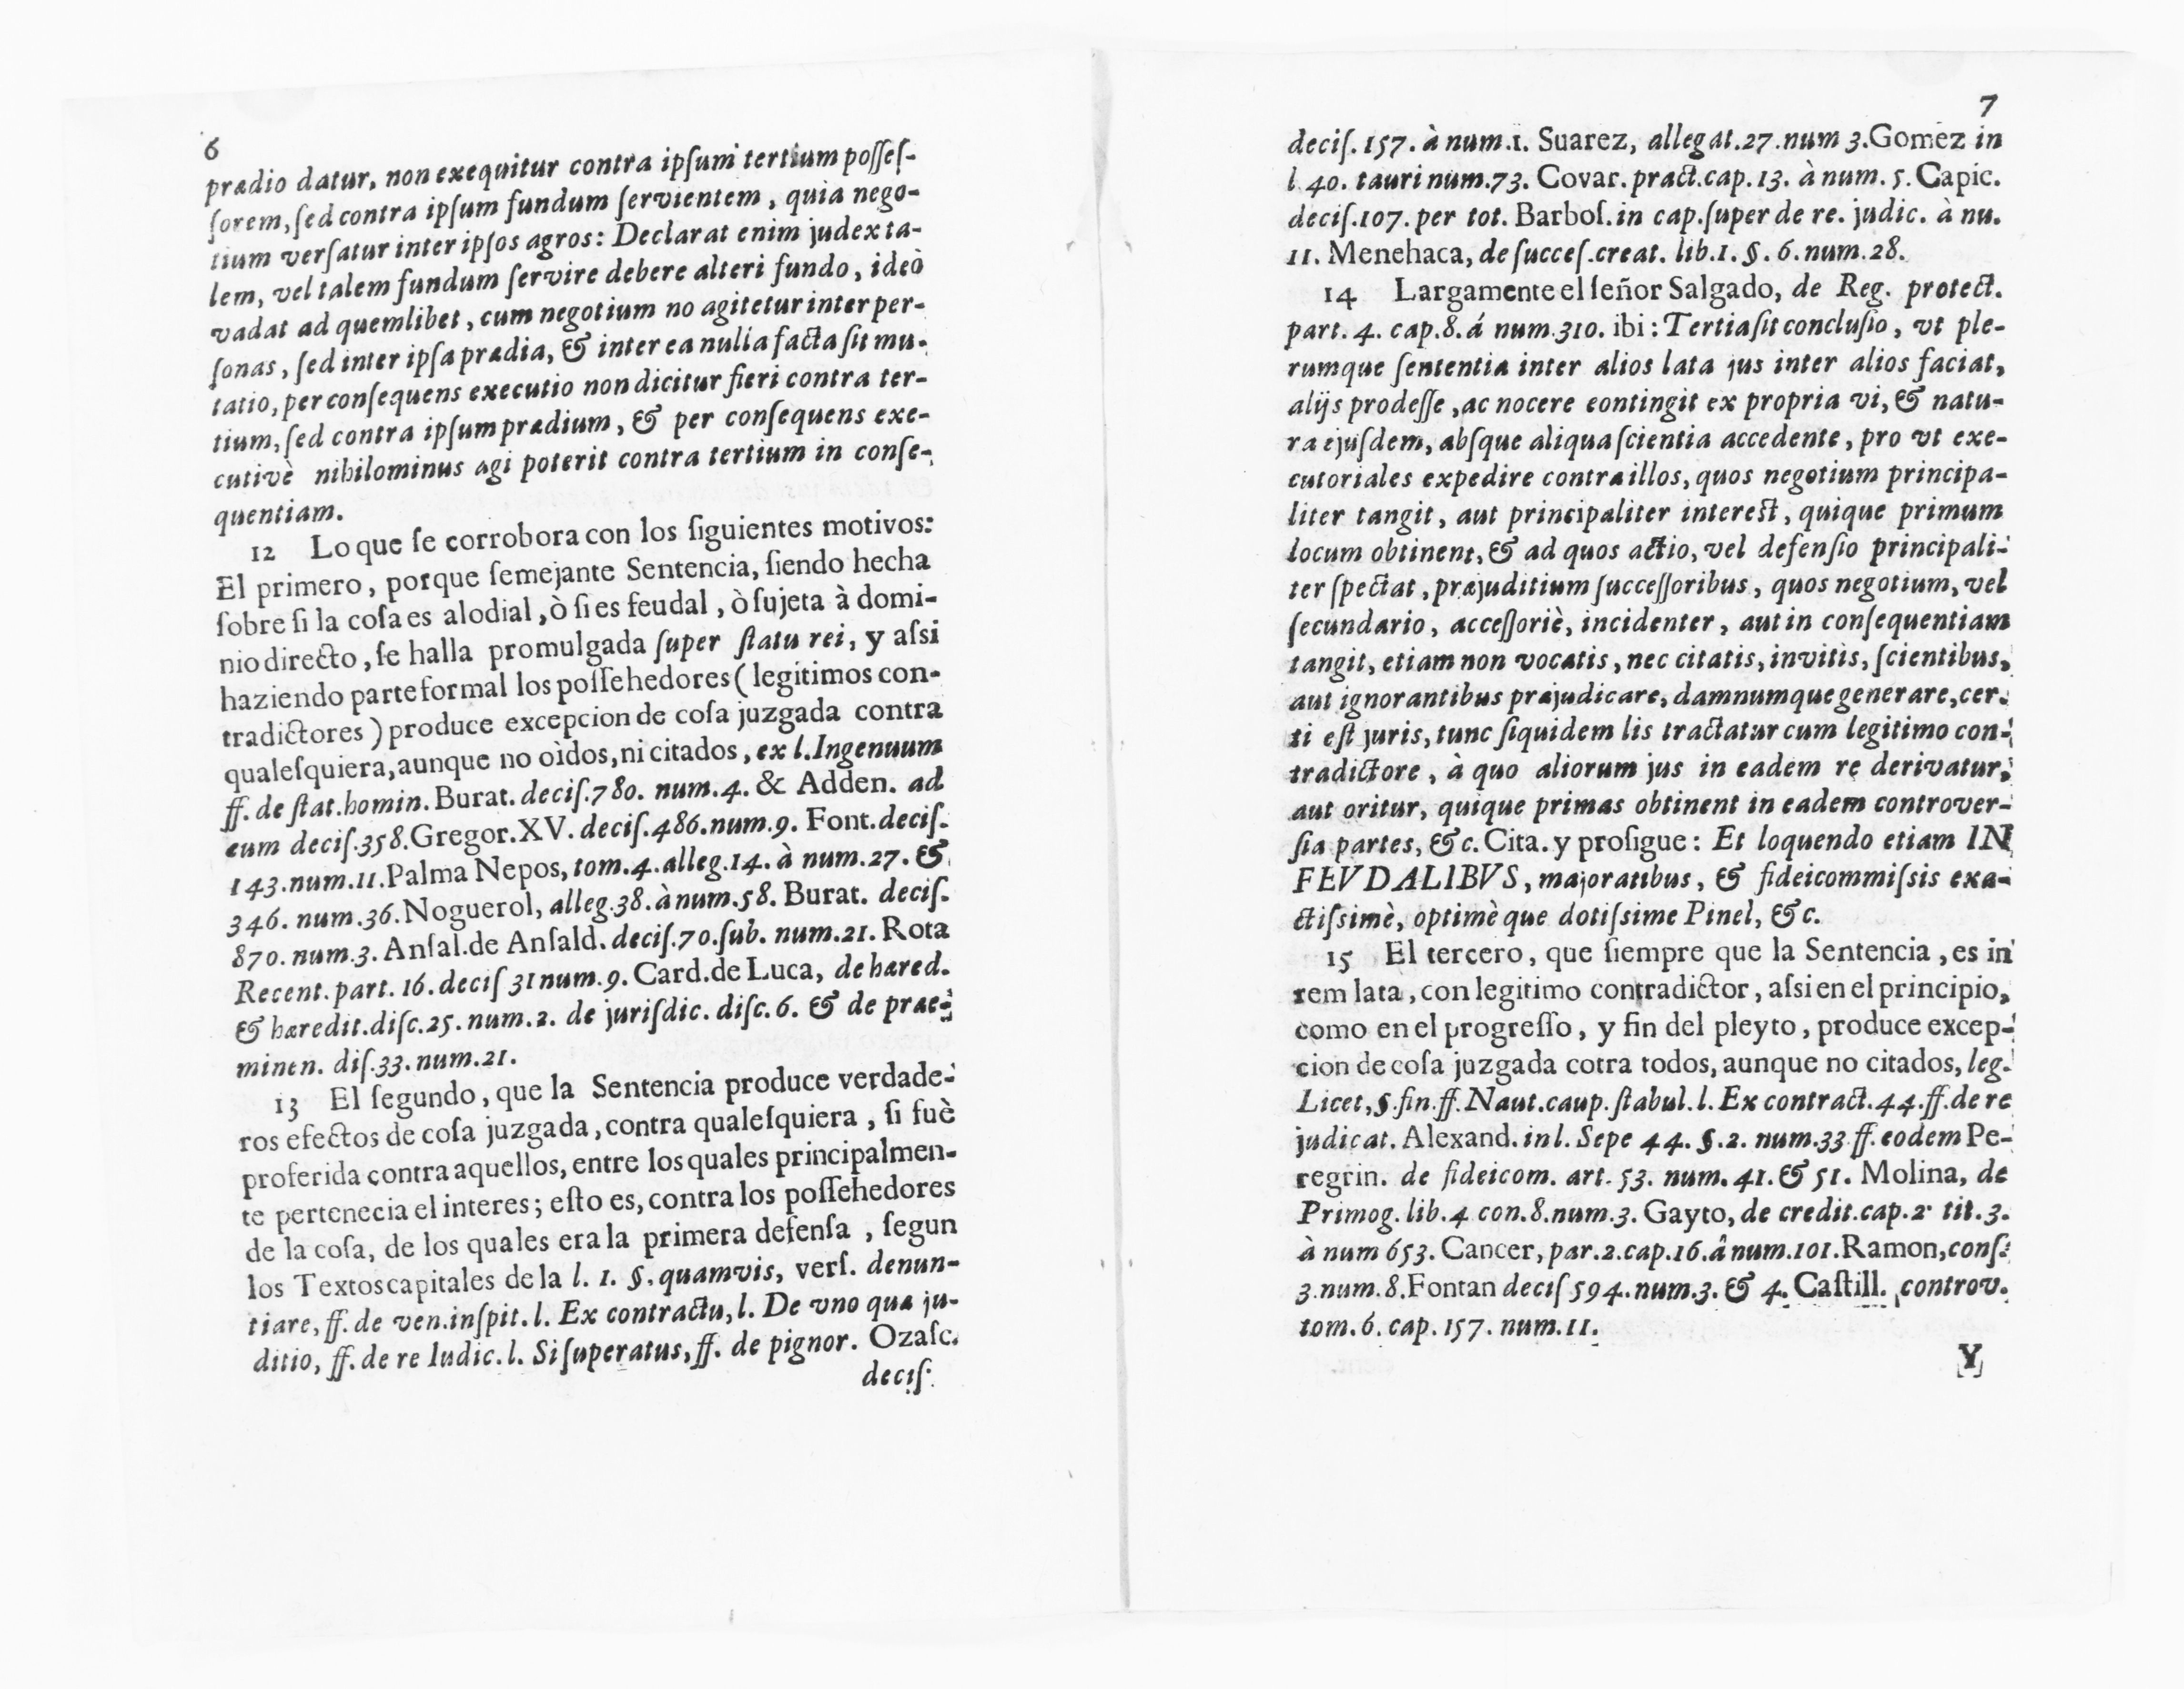 6
prædio datur, non exequitur contra ipſum tertium poſſeſ-
ſorem, ſed contra ipſum fundum ſervientem, quia nego-
tium verſatur inter ipſos agros: Declarat enim judex ta-
lem, vel talem fundum ſervire debere alteri fundo, ideò
vadat ad quemlibet, cum negotium no agitetur inter per-
ſonas, ſed inter ipſa prædia, & inter ea nulla facta ſit mu-
tatio, per conſequens executio non dicitur fieri contra ter-
tium, ſed contra ipſum prædium, & per conſequens exe-
cutivè nihilominus agi poterit contra tertium in conſe-
quentiam.
12 Lo que ſe corrobora con los ſiguientes motivos:
El primero, porque ſemejante Sentencia, ſiendo hecha
ſobre ſi la coſa es alodial, ò ſi es feudal, ò ſujeta à domi-
nio directo, ſe halla promulgada ſuper ſtatu rei, y aſsi
haziendo parte formal los poſſehedores (legitimos con-
tradictores) produce excepcion de coſa juzgada contra
qualeſquiera, aunque no oìdos, ni citados, ex l. Ingenuum
ff. de ſtat. homin. Burat. deciſ. 780. num. 4. & Adden. ad
eum deciſ. 358. Gregor. XV. deciſ. 486. num. 9. Font. deciſ.
143. num. 11. Palma Nepos, tom. 4. alleg. 14. à num. 27. &
346. num. 36. Noguerol, alleg. 38. à num. 58. Burat. deciſ.
870. num. 3. Anſal. de Anſald. deciſ. 70. ſub. num. 21. Rota
Recent. part. 16. deciſ 31 num. 9. Card. de Luca, de hæred.
& hæredit. diſc. 25. num. 2. de juriſdic. diſc. 6. & de præe-
minen. diſ. 33. num. 21.
13 El ſegundo, que la Sentencia produce verdade-
ros efectos de coſa juzgada, contra qualeſquiera, ſi fuè
proferida contra aquellos, entre los quales principalmen-
te pertenecia el interes; eſto es, contra los poſſehedores
de la coſa, de los quales era la primera defenſa, ſegun
los Textos capitales de la l. 1. §. quamvis, verſ. denun-
tiare, ff. de ven. inſpit. l. Ex contractu, l. De vno quæ ju-
ditio, ff. de re Iudic. l. Si ſuperatus, ff. de pignor. Ozaſc.
deciſ.
7
deciſ. 157. à num. 1. Suarez, allegat. 27. num 3. Gomez in
l 40. tauri num. 73. Covar. pract. cap. 13. à num. 5. Capic.
deciſ. 107. per tot. Barboſ. in cap. ſuper de re. judic. à nu.
11. Menehaca, de ſucceſ. creat. lib. 1. §. 6. num. 28.
14 Largamente el ſeñor Salgado, de Reg. protect.
part. 4. cap. 8. á num. 310. ibi: Tertia ſit concluſio, vt ple-
rumque ſententia inter alios lata jus inter alios faciat,
alijs prodeſſe, ac nocere eontingit ex propria vi, & natu-
ra ejuſdem, abſque aliqua ſcientia accedente, pro vt exe-
cutoriales expedire contra illos, quos negotium principa-
liter tangit, aut principaliter intereſt, quique primum
locum obtinent, & ad quos actio, vel defenſio principali-
ter ſpectat, præjuditium ſucceſſoribus, quos negotium, vel
ſecundario, acceſſoriè, incidenter, aut in conſequentiam
tangit, etiam non vocatis, nec citatis, invitis, ſcientibus,
aut ignorantibus præjudicare, damnumque generare, cer-
ti eſt juris, tunc ſiquidem lis tractatur cum legitimo con-
tradictore, à quo aliorum jus in eadem re derivatur,
aut oritur, quique primas obtinent in eadem controver-
ſia partes, &c. Cita. y proſigue: Et loquendo etiam IN
FEVDALIBVS, majoratibus, & fideicommiſsis exa-
ctiſsimè, optimè que dotiſsime Pinel, &c.
15 El tercero, que ſiempre que la Sentencia, es in
rem lata, con legitimo contradictor, aſsi en el principio,
como en el progreſſo, y fin del pleyto, produce excep-
cion de coſa juzgada cotra todos, aunque no citados, leg.
Licet, §. fin. ff. Naut. caup. ſtabul. l. Ex contract. 44. ff. de re
judicat. Alexand. in l. Sepe 44. §. 2. num. 33 ff. eodem Pe-
regrin. de fideicom. art. 53. num. 41. & 51. Molina, de
Primog. lib. 4 con. 8. num. 3. Gayto, de credit. cap. 2. tit. 3.
à num 653. Cancer, par. 2. cap. 16. â num. 101. Ramon, conſ.
3. num. 8. Fontan deciſ 594. num. 3. & 4. Caſtill. controv.
tom. 6. cap. 157. num. 11.
Y